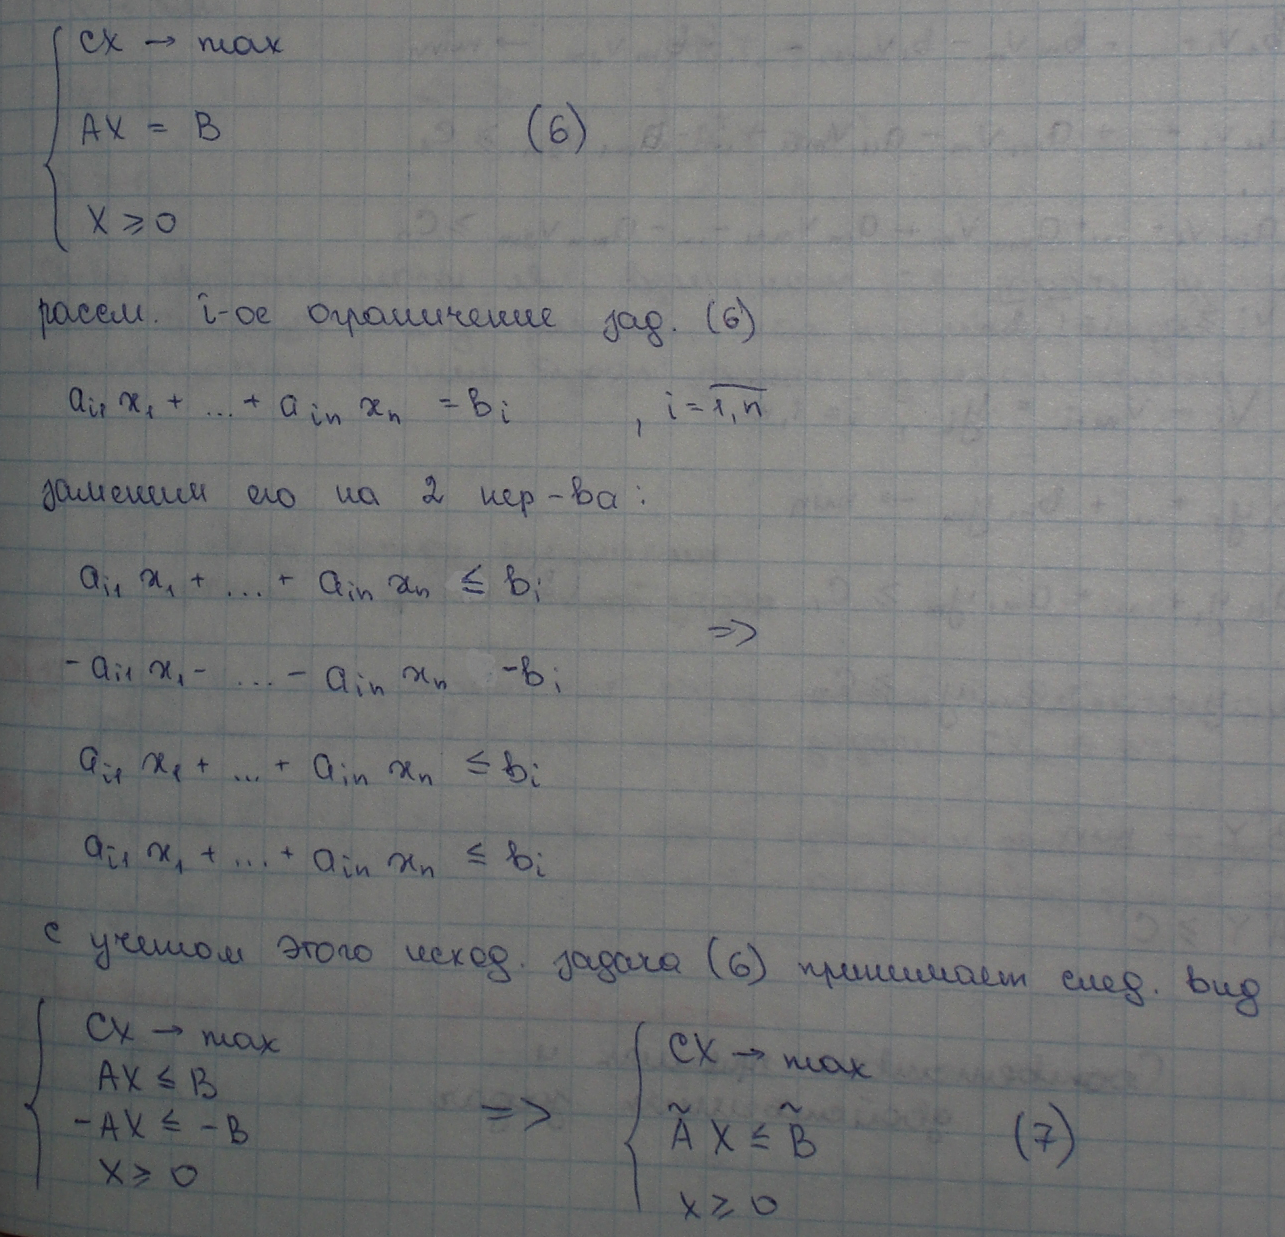 CX → max
AX = B (6)
X ≥ 0
рассм. i-ое ограничение зад. (6)
ai1 x1 + ... + ain xn = bi , i = 1,n
заменим его на 2 нер-ва:
ai1 x1 + ... + ain xn ≤ bi
=>
- ai1 x1 - ... - ain xn -bi
ai1 x1 + ... + ain xn ≤ bi
ai1 x1 + ... + ain xn ≤ bi
с учетом этого исход. задача (6) принимает след. вид
CX → max CX → max
AX ≤ B
-AX ≤ -B => Ã X ≤ B̃ (7)
X ≥ 0 X ≥ 0